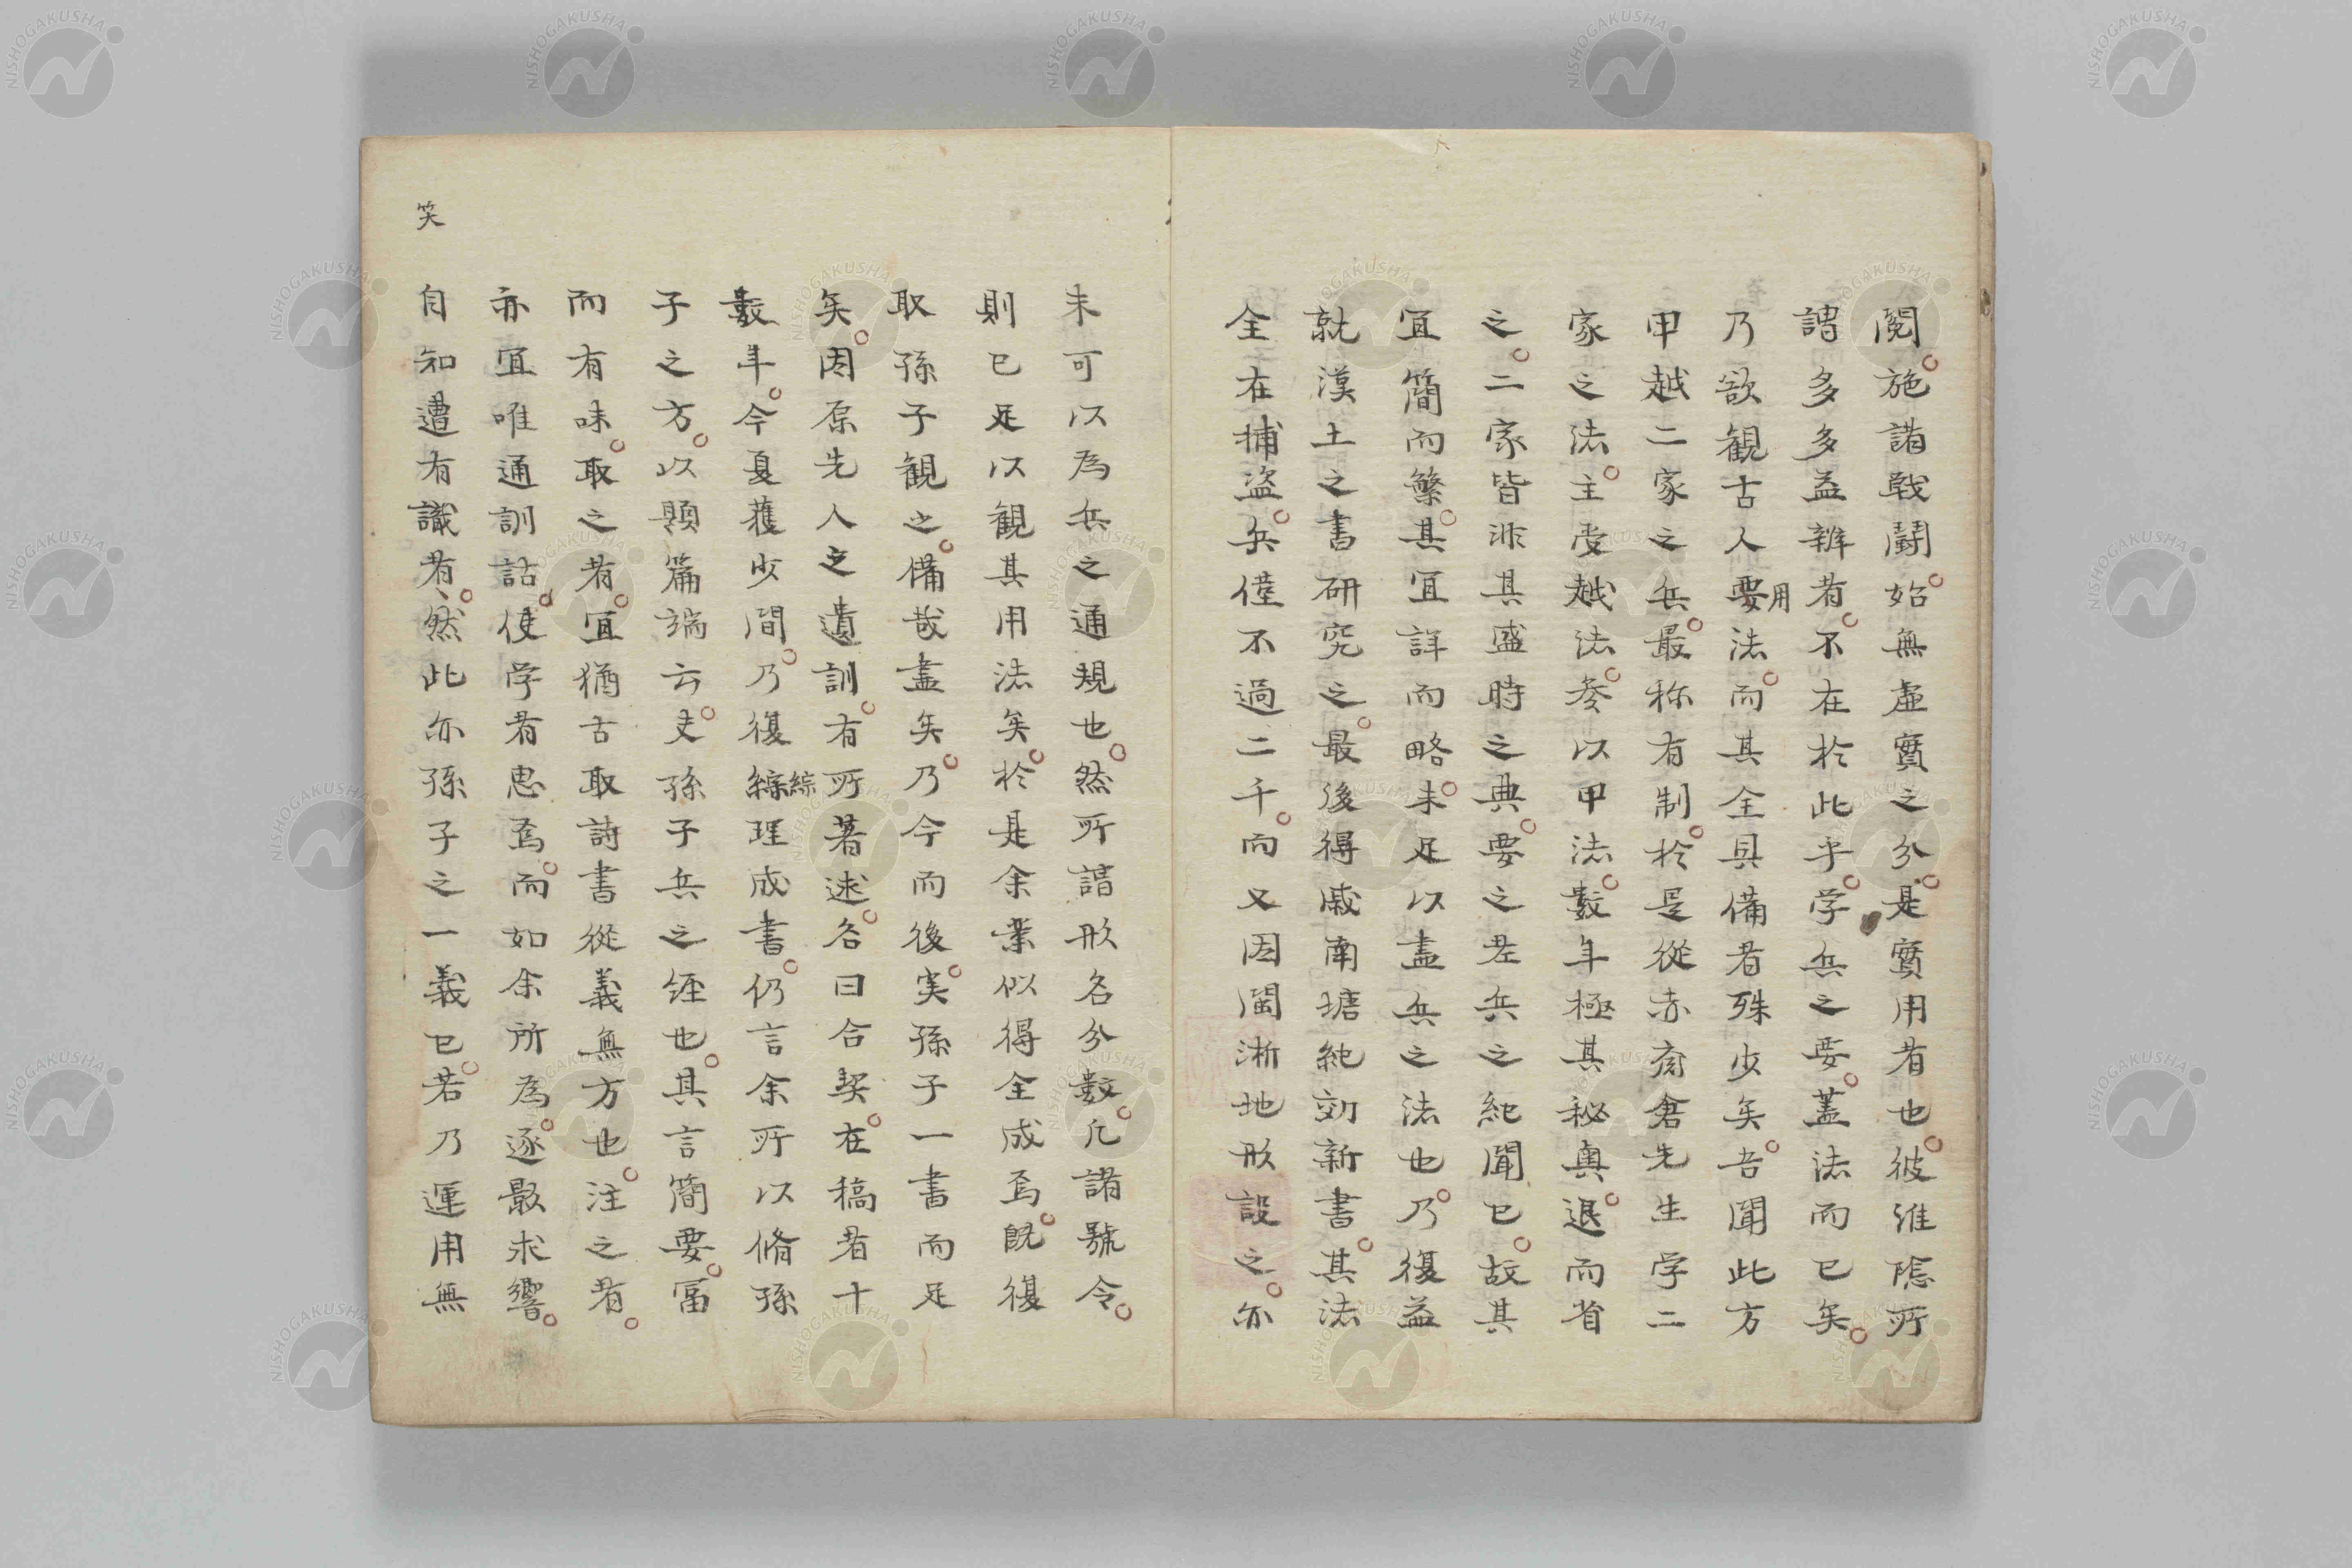 閱施諸戦鬪始無虛實之分是實用者也彼淮陰所
謂多多益辨者不在於此乎学兵之要蓋法而已矣
乃欲観古人要用法而其全具備者殊少矣吾聞此方
甲越二家之兵最称有制於是從赤斎倉先生学二
家之法主受越法参以甲法數年極其秘奥退而省
之二家皆非其盛時之典要之老兵之紀聞已故其
宜簡而繁其宜詳而略未足以盡兵之法也乃復益
就漢土之書研究之最後得戚南塘紀効新書其法
全在捕盗兵僅不過二千而又因閩淅地形設之亦
未可以為兵之通規也然所謂形名分數凡諸號令
則已足以観其用法矣於是余業似得全成焉既復
取孫子観之備哉盡矣乃今而後実孫子一書而足
矣因原先人之遺訓有所著述名曰合契在稿者十
數年今夏獲少間乃復綜綜理成書仍言余所以脩孫
子之方以題篇端云夫孫子兵之經也其言簡要冨
而有味取之者宜猶古取詩書從義無方也注之者
亦宜唯通訓詁使学者思焉而如余所為逐影求響
笑
自知遭有識者然此亦孫子之一義已若乃運用無
NISHOGAKUSHA